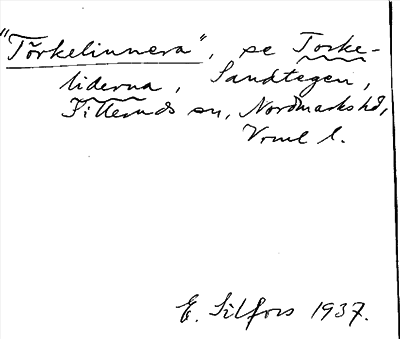 "Törkelinnera", se Torke-
liderna, Sandtegen,
Silleruds sn, Nordmarks hd,
Vrml l.
E. Silfors 1937.